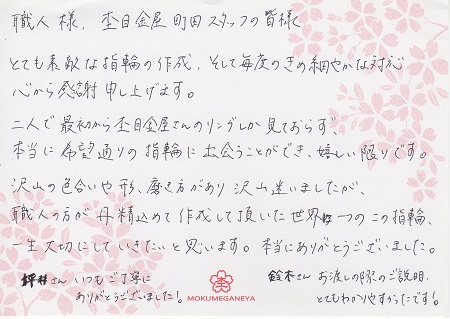 職人様、杢目金屋 町田スタッフの皆様
とても素敵な指輪の作成、そして毎度のきめ細やかな対応
心から感謝申し上げます。
二人で最初から杢目金屋さんのリングしか見ておらず、
本当に希望通りの指輪に出会うことができ、嬉しい限りです。
沢山の色合いや形、磨き方があり沢山迷いましたが、
職人の方が丹精込めて作成して頂いた世界に一つのこの指輪、
一生大切にしていきたいと思います。本当にありがとうございました。
坪井さん いつもご丁寧に
ありがとうございました!
MOKUMEGANEYA
鈴木さん お渡しの際のご説明、
とてもわかりやすかったです!